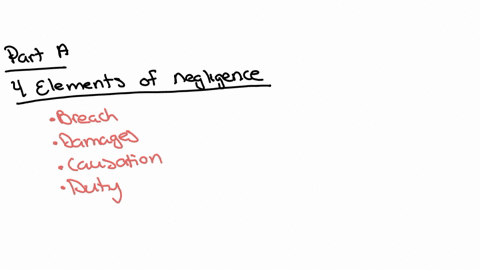 Part A
4 Elements of negligence
• Breach
• Damages
• Causation
• Duty